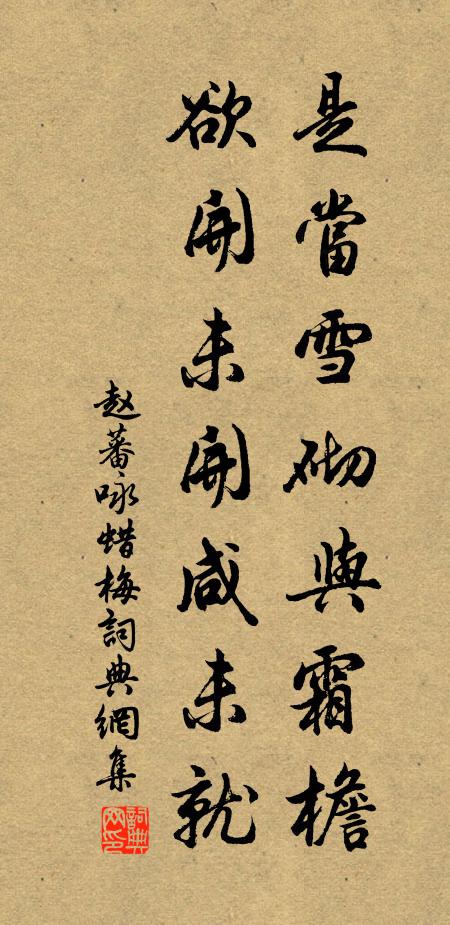 是當雪砌與霜檐
欲開未開咸未就
赵蕃咏蜡梅詞典網集
詞典網印